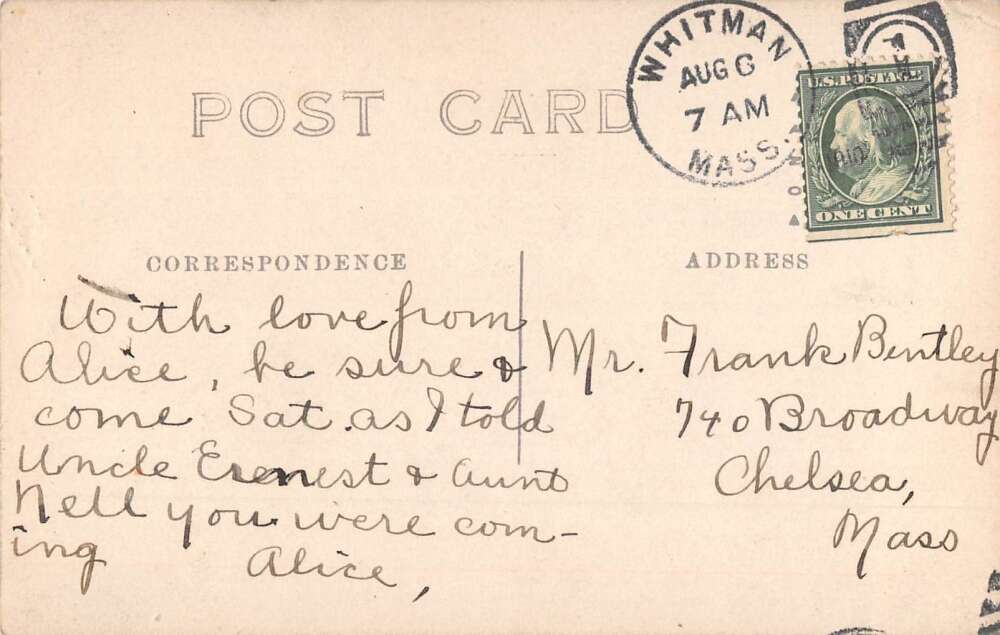 POST CARD
WHITMAN
AUG 6
7 AM
MASS.
1910
U.S. POSTAGE
ONE CENT
CORRESPONDENCE
With love from
Alice, be sure &
come Sat. as I told
Uncle Erenest & Aunt
Nell you were com-
ing
Alice,
ADDRESS
Mr. Frank Bentley
740 Broadway
Chelsea,
Mass